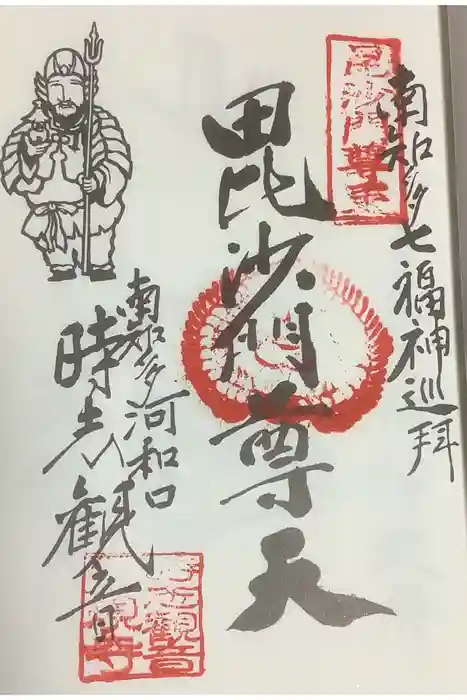 南知多七福神巡拝
毘沙門尊天
毘沙門尊天
南知多河和口
時志観音